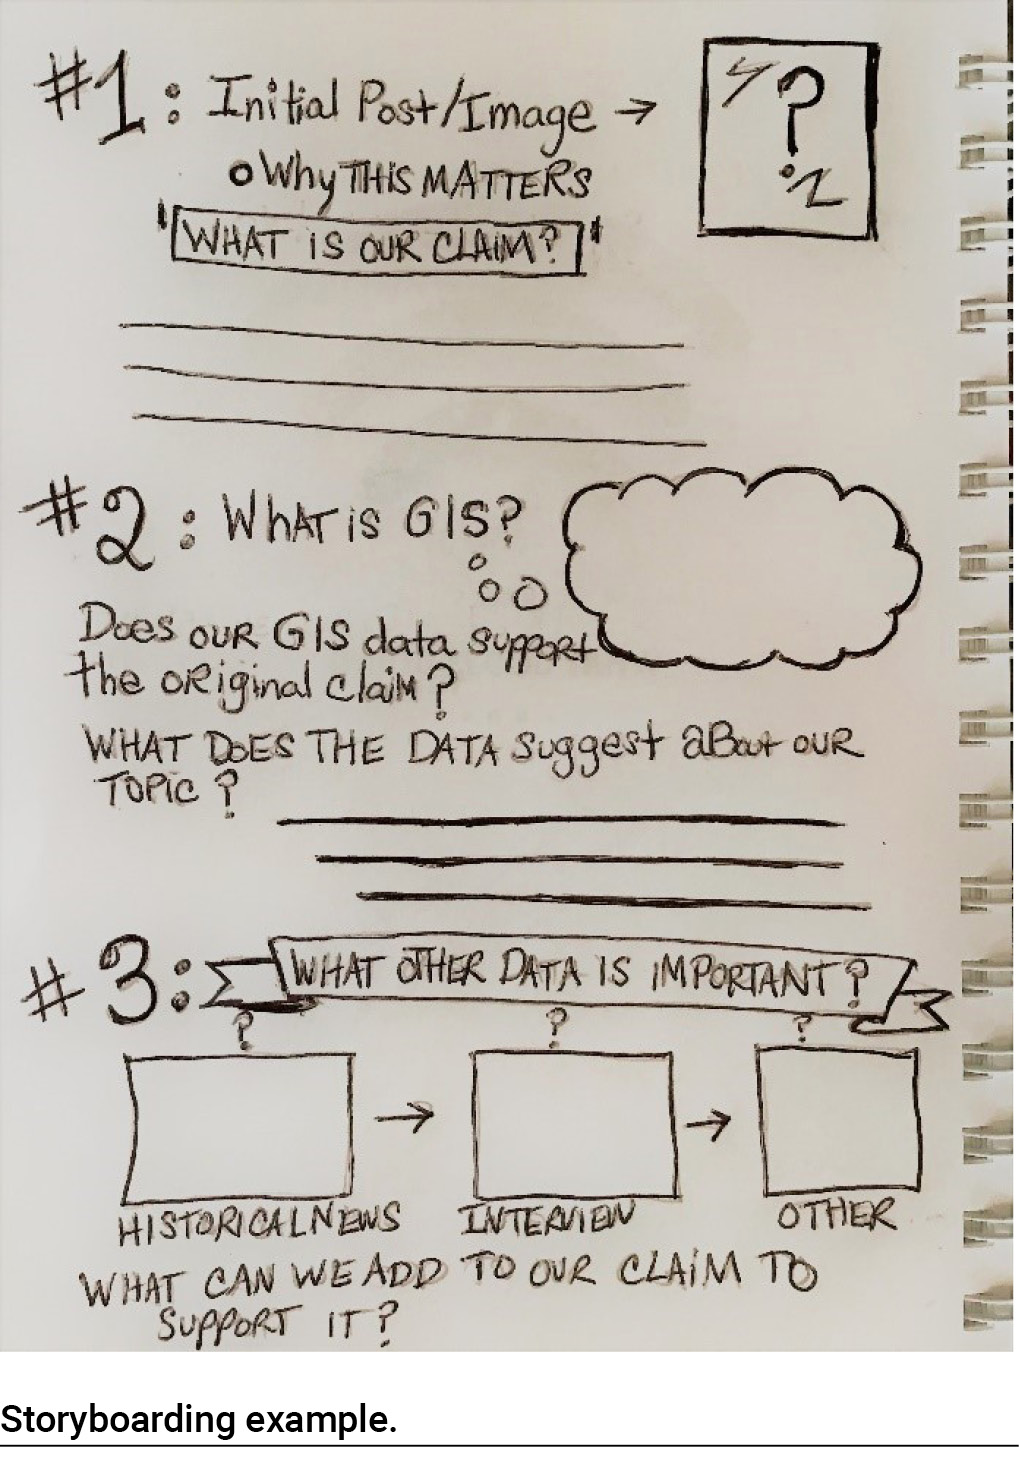 #1: Initial Post/Image →
o Why THIS MATTERS
"WHAT IS OUR CLAIM?"
?
#2: WHAT iS GIS?
Does OUR GIS data support
the original claim?
WHAT DOES THE DATA suggest aBout OUR
TOPIC?
#3: WHAT OTHER DATA IS IMPORTANT?
? ? ?
→ →
HISTORICAL NEWS INTERVIEW OTHER
WHAT CAN WE ADD TO OUR CLAIM TO
SUPPORT IT?
Storyboarding example.